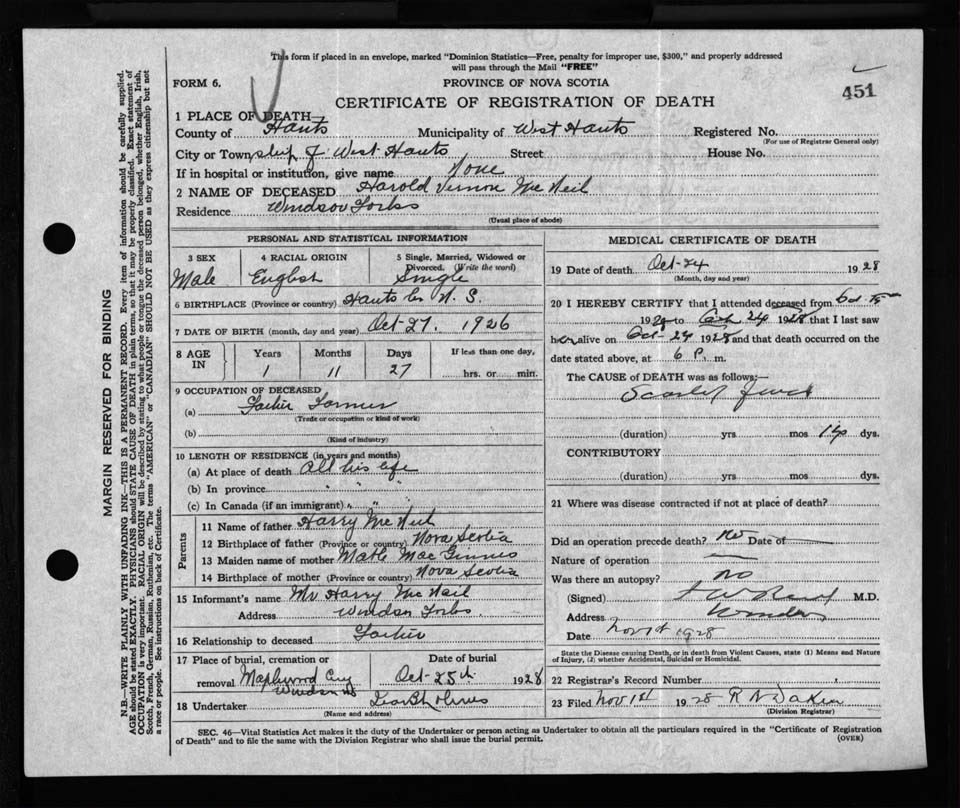 This form if placed in an envelope, marked "Dominion Statistics—Free, penalty for improper use, $300," and properly addressed
will pass through the Mail "FREE"
FORM 6.
PROVINCE OF NOVA SCOTIA
451
CERTIFICATE OF REGISTRATION OF DEATH
1 PLACE OF DEATH
County of Hants Municipality of West Hants Registered No.
(For use of Registrar General only)
City or Township of West Hants Street House No.
If in hospital or institution, give name None
2 NAME OF DECEASED Harold Vernon McNeil
Residence Windsor Forks
(Usual place of abode)
PERSONAL AND STATISTICAL INFORMATION
3 SEX 4 RACIAL ORIGIN 5 Single, Married, Widowed or
Divorced. (Write the word)
Male English Single
6 BIRTHPLACE (Province or country) Hants Co N. S.
7 DATE OF BIRTH (month, day and year) Oct-27. 1926
8 AGE IN Years Months Days If less than one day,
1 11 27 hrs. or min.
9 OCCUPATION OF DECEASED
(a) Father Farmer
(Trade or occupation or kind of work)
(b)
(Kind of industry)
10 LENGTH OF RESIDENCE (in years and months)
(a) At place of death All his life
(b) In province " " "
(c) In Canada (if an immigrant) " "
Parents
11 Name of father Harry McNeil
12 Birthplace of father (Province or country) Nova Scotia
13 Maiden name of mother Mac
14 Birthplace of mother (Province or country) Nova Scotia
15 Informant's name Mr Harry McNeil
Address Windsor Forks
16 Relationship to deceased Father
17 Place of burial, cremation or Date of burial
removal Maplewood Cey Oct-25th 1928
Windsor NS
18 Undertaker
(Name and address)
MEDICAL CERTIFICATE OF DEATH
19 Date of death Oct-24 1928
(Month, day and year)
20 I HEREBY CERTIFY that I attended deceased from Oct
1928 to Oct 24 1928 that I last saw
h alive on Oct-24 1928 and that death occurred on the
date stated above, at 6 P. m.
The CAUSE of DEATH was as follows:—
Scarlet fever
(duration) yrs mos 14 dys.
CONTRIBUTORY
(duration) yrs mos dys.
21 Where was disease contracted if not at place of death?
Did an operation precede death? No Date of
Nature of operation
Was there an autopsy? no
(Signed) M.D.
Address Windsor
Date Nov 1st 1928
State the Disease causing Death, or in death from Violent Causes, state (1) Means and Nature
of Injury, (2) whether Accidental, Suicidal or Homicidal.
22 Registrar's Record Number
23 Filed Nov 1st 1928 R N
(Division Registrar)
SEC. 46—Vital Statistics Act makes it the duty of the Undertaker or person acting as Undertaker to obtain all the particulars required in the "Certificate of Registration
of Death" and to file the same with the Division Registrar who shall issue the burial permit.
(OVER)
MARGIN RESERVED FOR BINDING
N.B.—WRITE PLAINLY WITH UNFADING INK—THIS IS A PERMANENT RECORD. Every item of information should be carefully supplied.
AGE should be stated EXACTLY. PHYSICIANS should STATE CAUSE OF DEATH in plain terms, so that it may be properly classified. Exact statement of
OCCUPATION is very important. RACIAL ORIGIN will be described by stating to what people or tongue the deceased person belonged, whether English, Irish,
Scotch, French, German, Russian, Ruthenian, etc. The terms "AMERICAN" or "CANADIAN" SHOULD NOT BE USED as they express citizenship but not
a race or people. See instructions on back of Certificate.